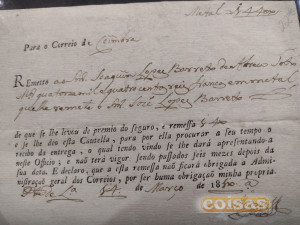 Metal $ 4400
Para o Correio de Coimbra
Remetto ao Snr. Joaquim Lopes Barreto da
quatorze mil e quatro centos reis em metal
que lhe remete o Snr. José Lopes Barreto
de que se lhe levou de premio do seguro, e remessa $ 40
e se lhe deo esta Cautella, para por ella procurar a seu tempo o
recibo de entrega, o qual tendo vindo se lhe dará apresentando-a
neste Officio, e não terá vigor sendo possados seis mezes depois da
sua data. E declaro, que a esta remessa não ficará obrigada a Admi-
nistração geral dos Correios, por ser huma obrigação minha propria.
de Março de 18
coisas